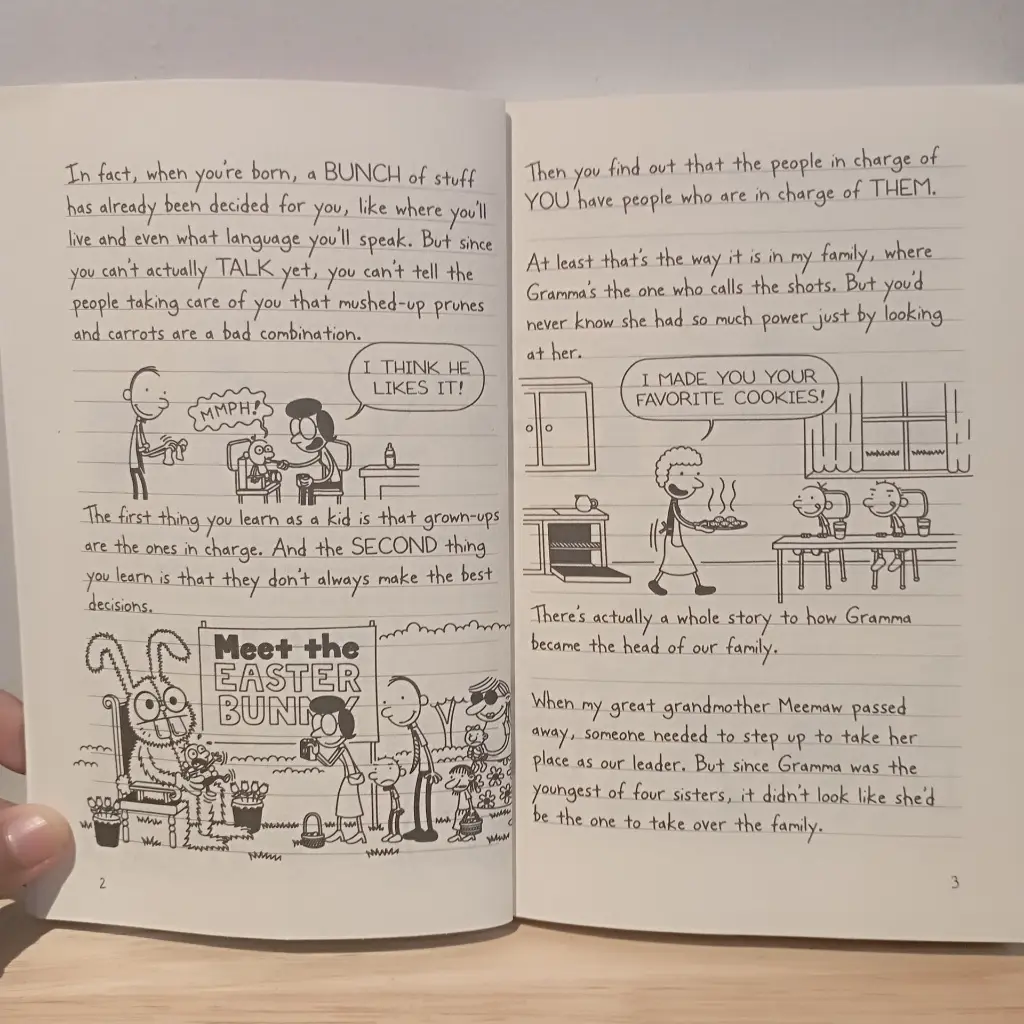 In fact, when you're born, a BUNCH of stuff
has already been decided for you, like where you'll
live and even what language you'll speak. But since
you can't actually TALK yet, you can't tell the
people taking care of you that mushed-up prunes
and carrots are a bad combination.
MMPH!
I THINK HE
LIKES IT!
The first thing you learn as a kid is that grown-ups
are the ones in charge. And the SECOND thing
you learn is that they don't always make the best
decisions.
Meet the
EASTER
BUNNY
2
Then you find out that the people in charge of
YOU have people who are in charge of THEM.
At least that's the way it is in my family, where
Gramma's the one who calls the shots. But you'd
never know she had so much power just by looking
at her.
I MADE YOU YOUR
FAVORITE COOKIES!
There's actually a whole story to how Gramma
became the head of our family.
When my great grandmother Meemaw passed
away, someone needed to step up to take her
place as our leader. But since Gramma was the
youngest of four sisters, it didn't look like she'd
be the one to take over the family.
3